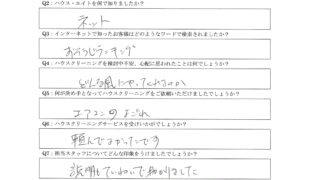 Q2：ハウス・エイトを何で知りましたか？
ネット
Q3：インターネットで知ったお客様はどのようなワードで検索されましたか？
おそうじランキング
Q4：ハウスクリーニングを検討中不安、心配に思われたことは何でしょうか？
どんな風にやってくれるのか
Q5：何が決め手となってハウスクリーニングをご依頼いただけましたでしょうか？
エアコンのよごれ
Q6：ハウスクリーニングサービスを受けいかがでしょうか？
頼んでよかったです
Q7：担当スタッフについてどんな印象をうけましたでしょうか？
説明もていねいで助かりました